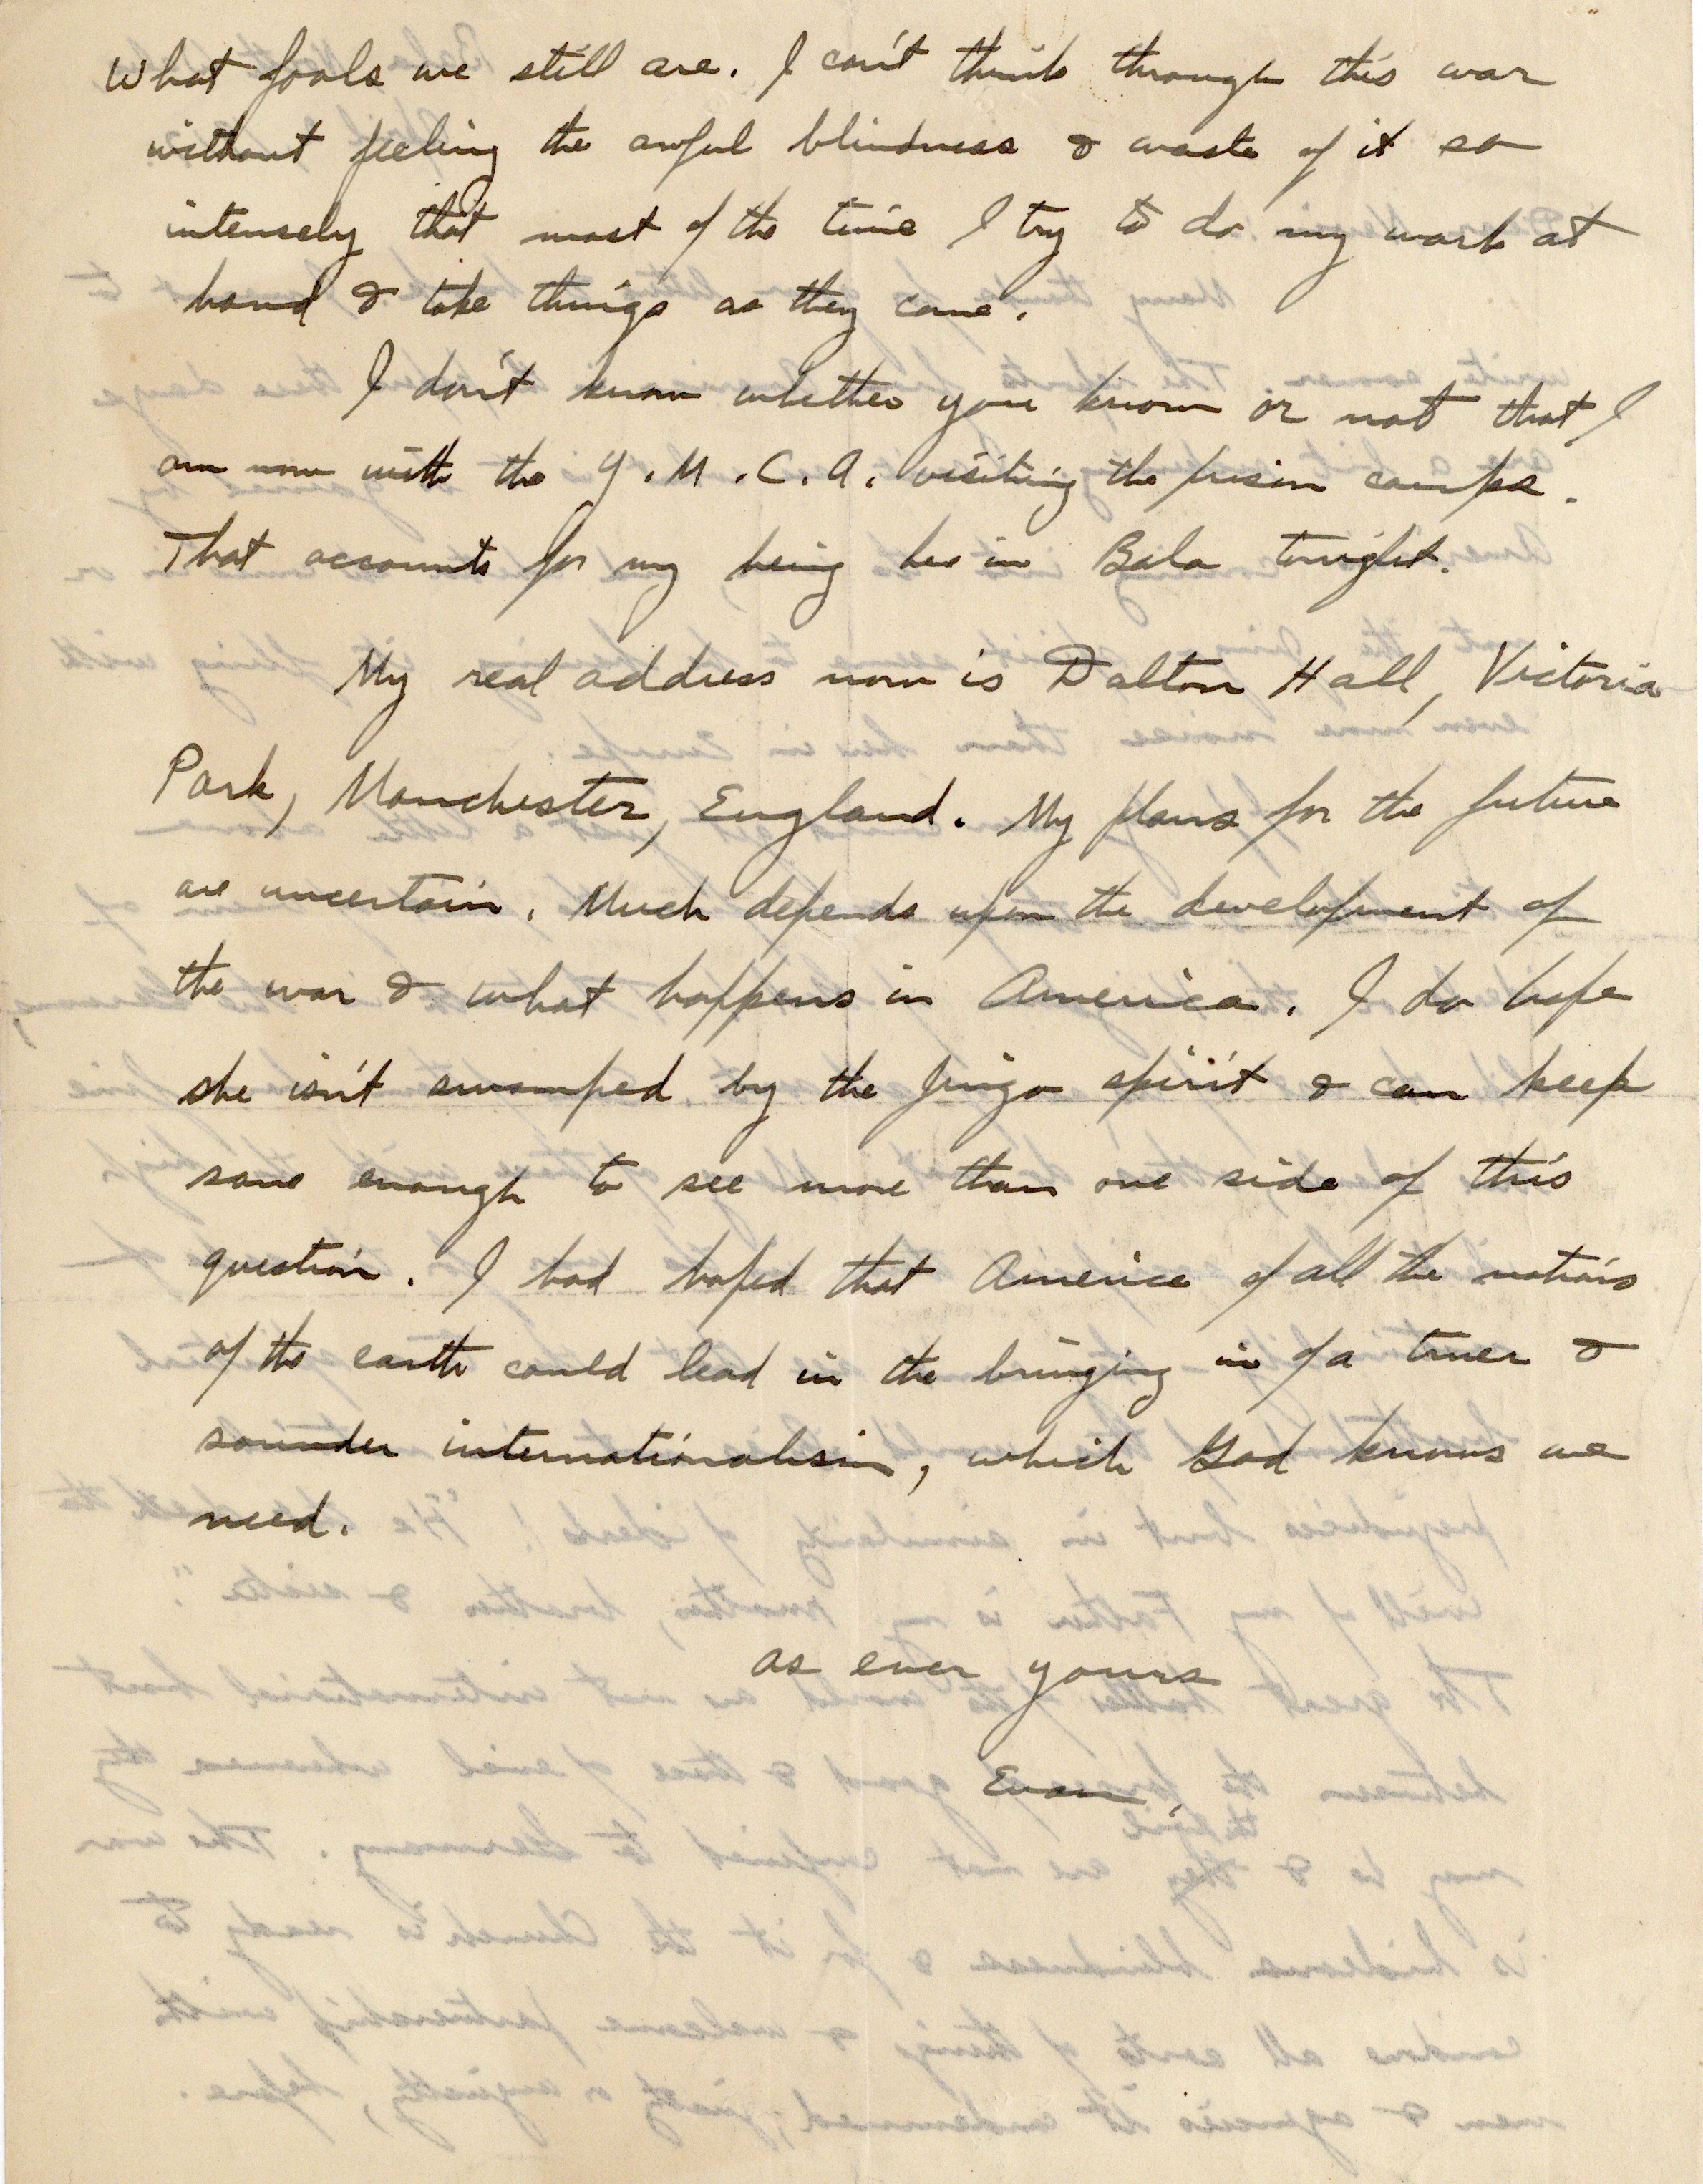 What fools we still are. I can't think through this war
without feeling the awful blindness & waste of it so
intensely that most of the time I try to do my work at
hand & take things as they come.
I don't know whether you know or not that I
am now with the Y.M.C.A. visiting the prison camps.
That accounts for my being here in Bala tonight.
My real address now is Dalton Hall, Victoria
Park, Manchester, England. My plans for the future
are uncertain. Much depends upon the development of
the war & what happens in America. I do hope
she isn't swamped by the jingo spirit & can keep
sane enough to see more than one side of this
question. I had hoped that America of all the nations
of the earth could lead in the bringing in of a truer &
sounder internationalism, which God knows we
need.
as ever yours
Evan.